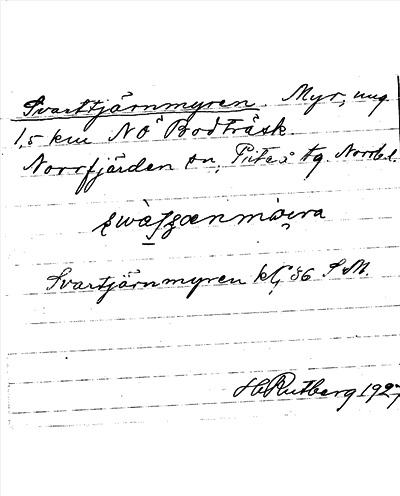 Svarttjärnmyren. Myr, ung.
1,5 km NÖ Bodträsk.
Norrfjärden sn, Piteå tg. Norrb. l.
Svartjärnmyren kG 86 SM.
H. Rutberg 1927